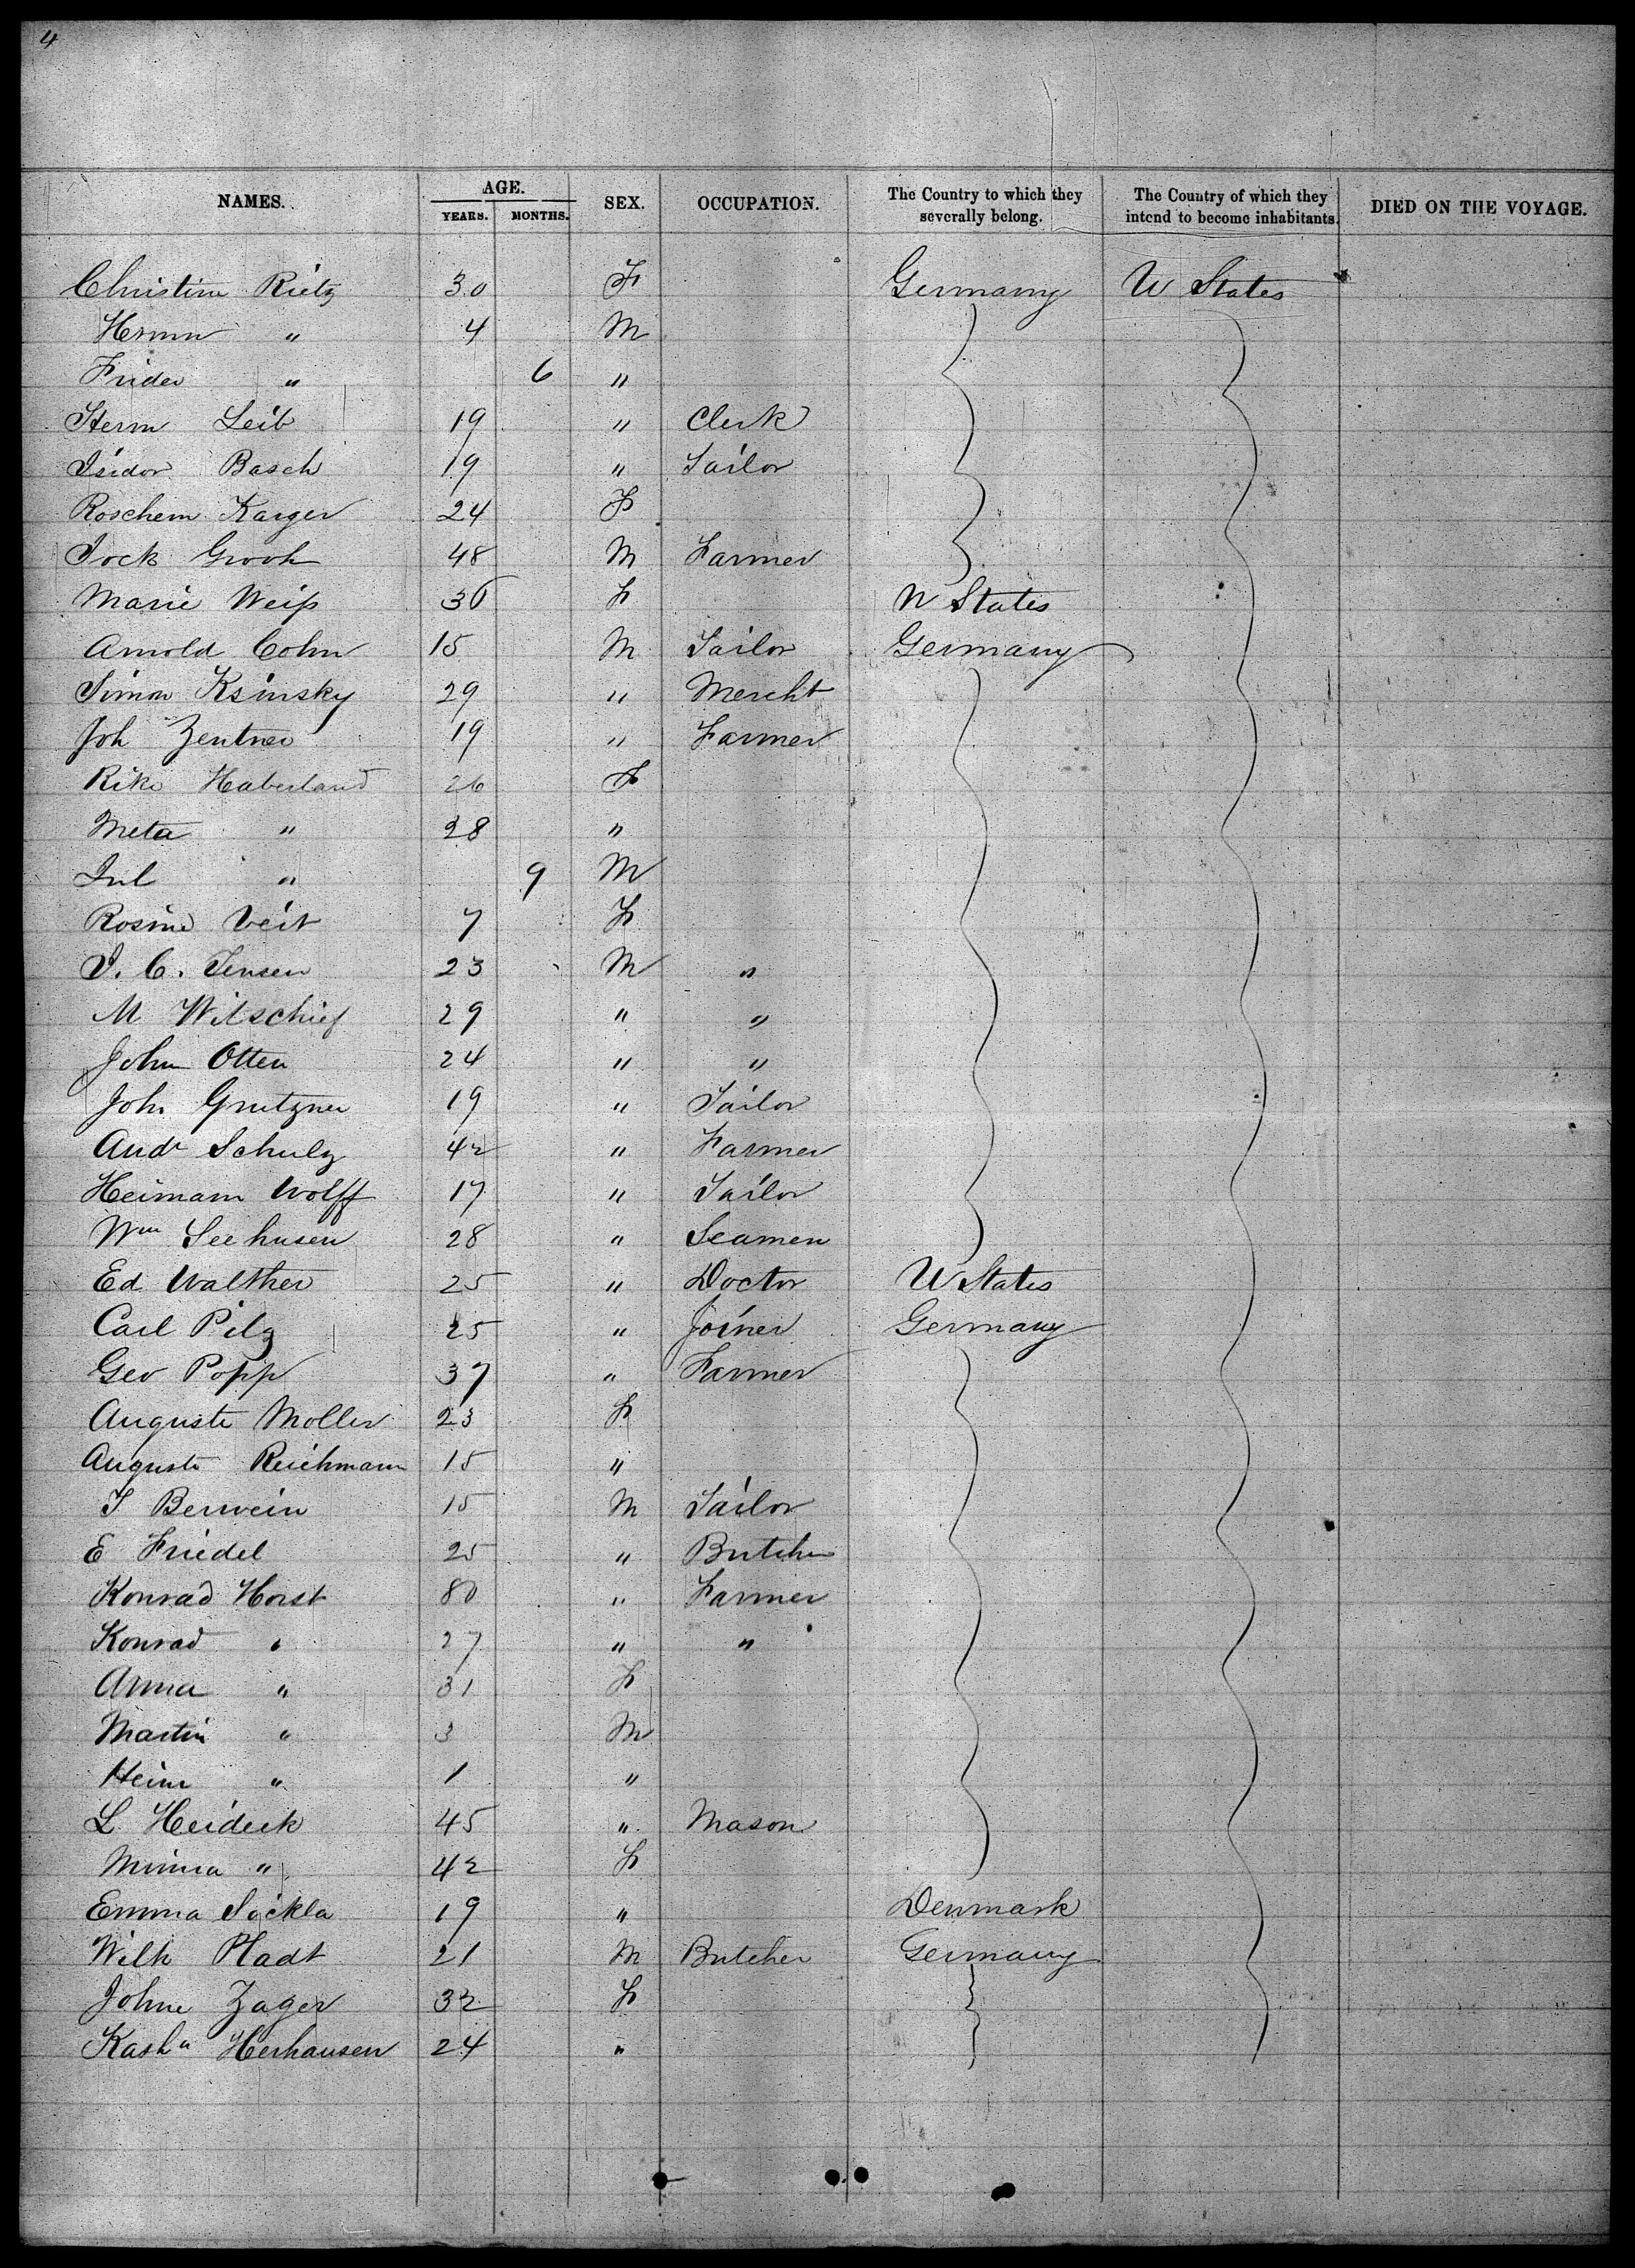 4
NAMES. AGE. SEX. OCCUPATION. The Country to which they severally belong. The Country of which they intend to become inhabitants. DIED ON THE VOYAGE.
YEARS. MONTHS.
Christine Rietz 30 F Germany U States
Hermn " 4 M
Frider " 6 "
Herm Leib 19 " Clerk
Isidor Basch 19 " Tailor
Roschem Karger 24 F
Jock Grooh 48 M Farmer
Marie Weiss 36 F U States
Arnold Cohn 15 M Tailor Germany
Simon Ksinsky 29 " Mercht
Joh Zentner 19 " Farmer
Rike Haberland 26 F
Meta " 28 "
Jul " 9 M
Rosine Veit 7 F
J. C. Jensen 23 M "
M Witschief 29 " "
John Otten 24 " "
Joh. Grutzner 19 " Tailor
Andr Schulz 42 " Farmer
Heimann Wolff 17 " Tailor
Wm Seehusen 28 " Seamen
Ed Walther 25 " Doctor U States
Carl Pilz 25 " Joiner Germany
Geo Popp 37 " Farmer
Auguste Moller 23 F
Auguste Reichmann 15 "
J Berwein 15 M Tailor
E Friedel 25 " Butcher
Konrad Horst 80 " Farmer
Konrad " 27 " "
Anna " 31 F
Martin " 3 M
Heinr " 1 "
L. Heideck 45 " Mason
Minna " 42 F
Emma Sockla 19 " Denmark
Wilh Pladt 21 M Butcher Germany
Johne Zager 32 F
Kasha Herhausen 24 "